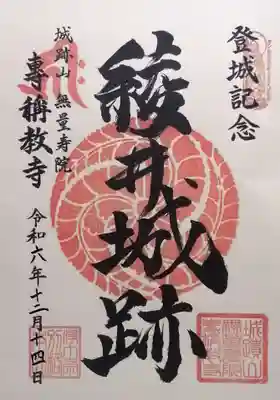 登城記念
綾井城跡
城跡山 無量寿院
専稱教寺
令和六年十二月十四日